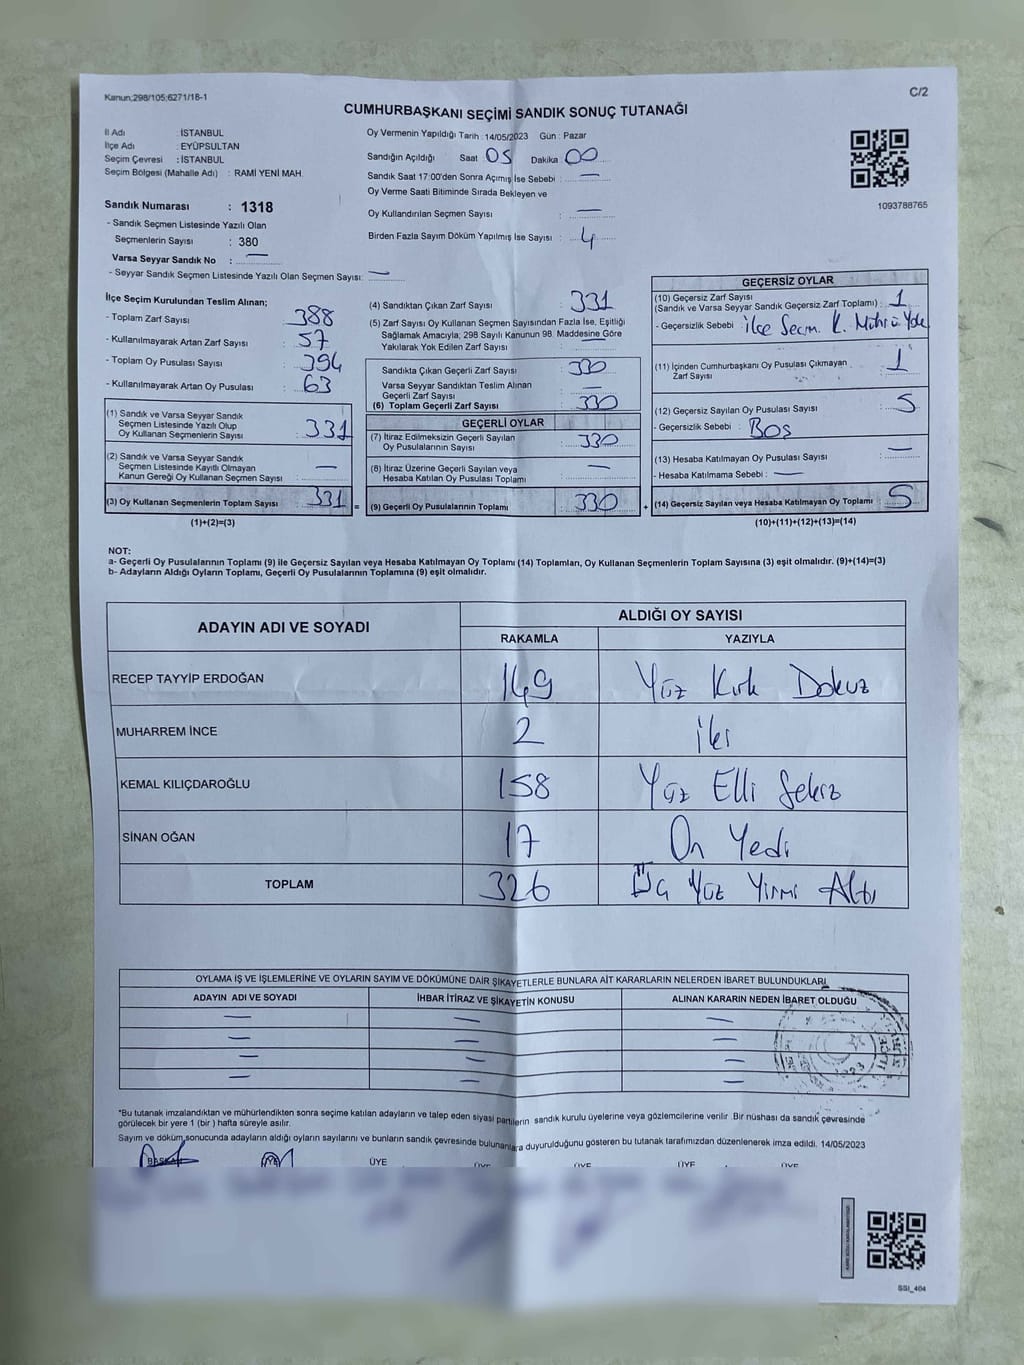 Kanun;298/105;6271/18-1
C/2
CUMHURBAŞKANI SEÇİMİ SANDIK SONUÇ TUTANAĞI
İl Adı : İSTANBUL
İlçe Adı : EYÜPSULTAN
Seçim Çevresi : İSTANBUL
Seçim Bölgesi (Mahalle Adı) : RAMİ YENİ MAH.
Sandık Numarası : 1318
- Sandık Seçmen Listesinde Yazılı Olan
Seçmenlerin Sayısı : 380
Varsa Seyyar Sandık No : —
- Seyyar Sandık Seçmen Listesinde Yazılı Olan Seçmen Sayısı: —
Oy Vermenin Yapıldığı Tarih : 14/05/2023 Gün : Pazar
Sandığın Açıldığı Saat 05 Dakika 00
Sandık Saat 17:00'den Sonra Açılmış İse Sebebi : —
Oy Verme Saati Bitiminde Sırada Bekleyen ve
Oy Kullandırılan Seçmen Sayısı : —
Birden Fazla Sayım Döküm Yapılmış İse Sayısı : 4
1093788765
İlçe Seçim Kurulundan Teslim Alınan;
- Toplam Zarf Sayısı : 388
- Kullanılmayarak Artan Zarf Sayısı : 57
- Toplam Oy Pusulası Sayısı : 394
- Kullanılmayarak Artan Oy Pusulası : 63
(1) Sandık ve Varsa Seyyar Sandık
Seçmen Listesinde Yazılı Olup
Oy Kullanan Seçmenlerin Sayısı : 331
(2) Sandık ve Varsa Seyyar Sandık
Seçmen Listesinde Kayıtlı Olmayan
Kanun Gereği Oy Kullanan Seçmen Sayısı : —
(3) Oy Kullanan Seçmenlerin Toplam Sayısı : 331 =
(1)+(2)=(3)
(4) Sandıktan Çıkan Zarf Sayısı : 331
(5) Zarf Sayısı Oy Kullanan Seçmen Sayısından Fazla İse, Eşitliği
Sağlamak Amacıyla; 298 Sayılı Kanunun 98. Maddesine Göre
Yakılarak Yok Edilen Zarf Sayısı : —
Sandıkta Çıkan Geçerli Zarf Sayısı : 330
Varsa Seyyar Sandıktan Teslim Alınan
Geçerli Zarf Sayısı : —
(6) Toplam Geçerli Zarf Sayısı : 330
GEÇERLİ OYLAR
(7) İtiraz Edilmeksizin Geçerli Sayılan
Oy Pusulalarının Sayısı : 330
(8) İtiraz Üzerine Geçerli Sayılan veya
Hesaba Katılan Oy Pusulası Toplamı : —
(9) Geçerli Oy Pusulalarının Toplamı : 330 +
GEÇERSİZ OYLAR
(10) Geçersiz Zarf Sayısı
(Sandık ve Varsa Seyyar Sandık Geçersiz Zarf Toplamı) : 1
- Geçersizlik Sebebi : İlçe Seçm. K. Mührü Yok
(11) İçinden Cumhurbaşkanı Oy Pusulası Çıkmayan
Zarf Sayısı : 1
(12) Geçersiz Sayılan Oy Pusulası Sayısı : 5
- Geçersizlik Sebebi : Boş
(13) Hesaba Katılmayan Oy Pusulası Sayısı : —
- Hesaba Katılmama Sebebi : —
(14) Geçersiz Sayılan veya Hesaba Katılmayan Oy Toplamı : 5
(10)+(11)+(12)+(13)=(14)
NOT:
a- Geçerli Oy Pusulalarının Toplamı (9) ile Geçersiz Sayılan veya Hesaba Katılmayan Oy Toplamı (14) Toplamları, Oy Kullanan Seçmenlerin Toplam Sayısına (3) eşit olmalıdır. (9)+(14)=(3)
b- Adayların Aldığı Oyların Toplamı, Geçerli Oy Pusulalarının Toplamına (9) eşit olmalıdır.
ADAYIN ADI VE SOYADI
ALDIĞI OY SAYISI
RAKAMLA YAZIYLA
RECEP TAYYİP ERDOĞAN 149 Yüz Kırk Dokuz
MUHARREM İNCE 2 İki
KEMAL KILIÇDAROĞLU 158 Yüz Elli Sekiz
SİNAN OĞAN 17 On Yedi
TOPLAM 326 Üç Yüz Yirmi Altı
OYLAMA İŞ VE İŞLEMLERİNE VE OYLARIN SAYIM VE DÖKÜMÜNE DAİR ŞİKAYETLERLE BUNLARA AİT KARARLARIN NELERDEN İBARET BULUNDUKLARI
ADAYIN ADI VE SOYADI İHBAR İTİRAZ VE ŞİKAYETİN KONUSU ALINAN KARARIN NEDEN İBARET OLDUĞU
— — —
— — —
— — —
— — —
*Bu tutanak imzalandıktan ve mühürlendikten sonra seçime katılan adayların ve talep eden siyasi partilerin sandık kurulu üyelerine veya gözlemcilerine verilir. Bir nüshası da sandık çevresinde
görülecek bir yere 1 (bir ) hafta süreyle asılır.
Sayım ve döküm sonucunda adayların aldığı oyların sayılarını ve bunların sandık çevresinde bulunanlara duyurulduğunu gösteren bu tutanak tarafımızdan düzenlenerek imza edildi. 14/05/2023
BAŞKAN ÜYE ÜYE ÜYE ÜYE ÜYE
SSI_404